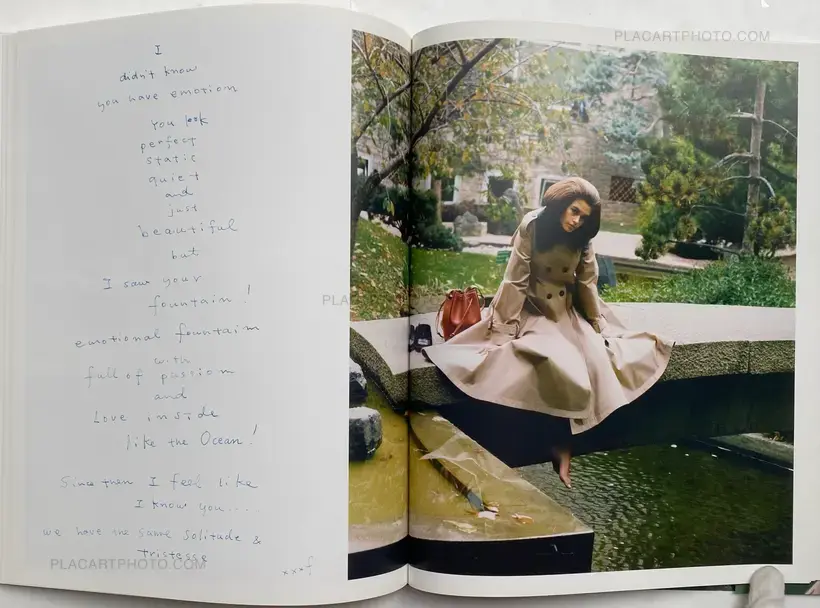 I
didn't know
you have emotion
You look
perfect
static
quiet
and
just
beautiful
but
I saw your
fountain!
emotional fountain
with
full of passion
and
Love inside
like the Ocean!
Since then I feel like
I know you....
we have the same solitude &
Tristesse
xxxf
PLACARTPHOTO.COM
PLACARTPHOTO.COM